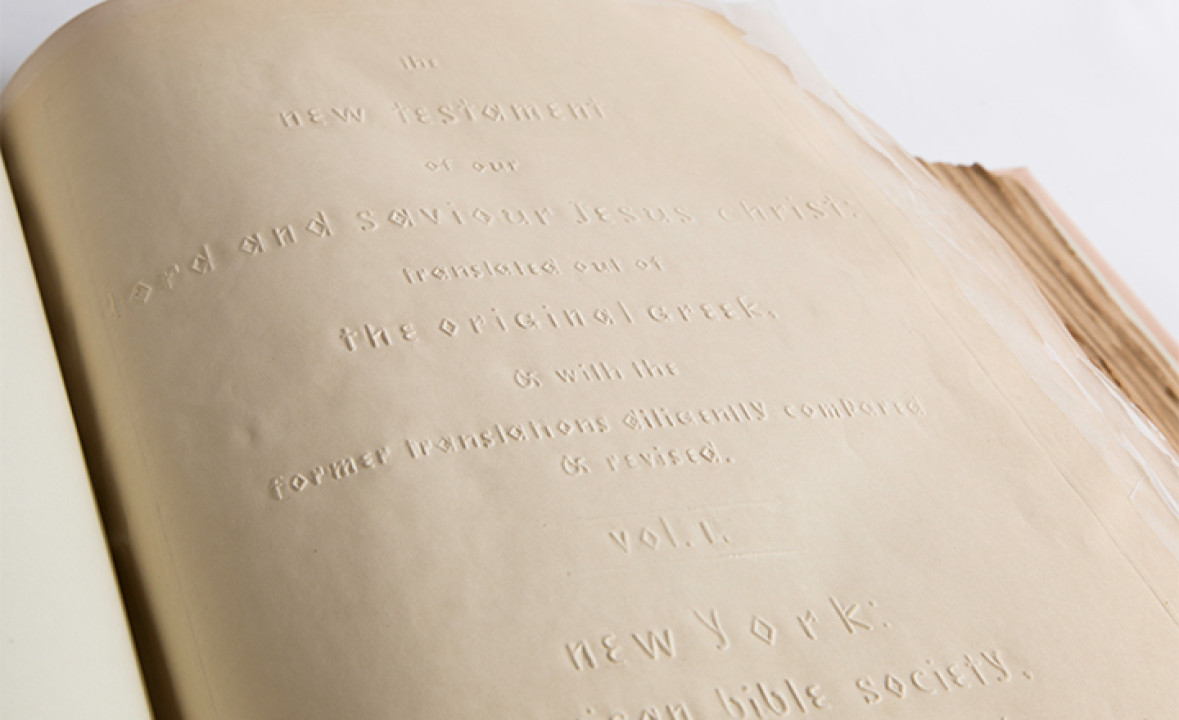 the
new testament
of our
lord and saviour jesus christ:
translated out of
the original greek,
& with the
former translations diligently compared
& revised.
vol. 1.
new york:
bible society,